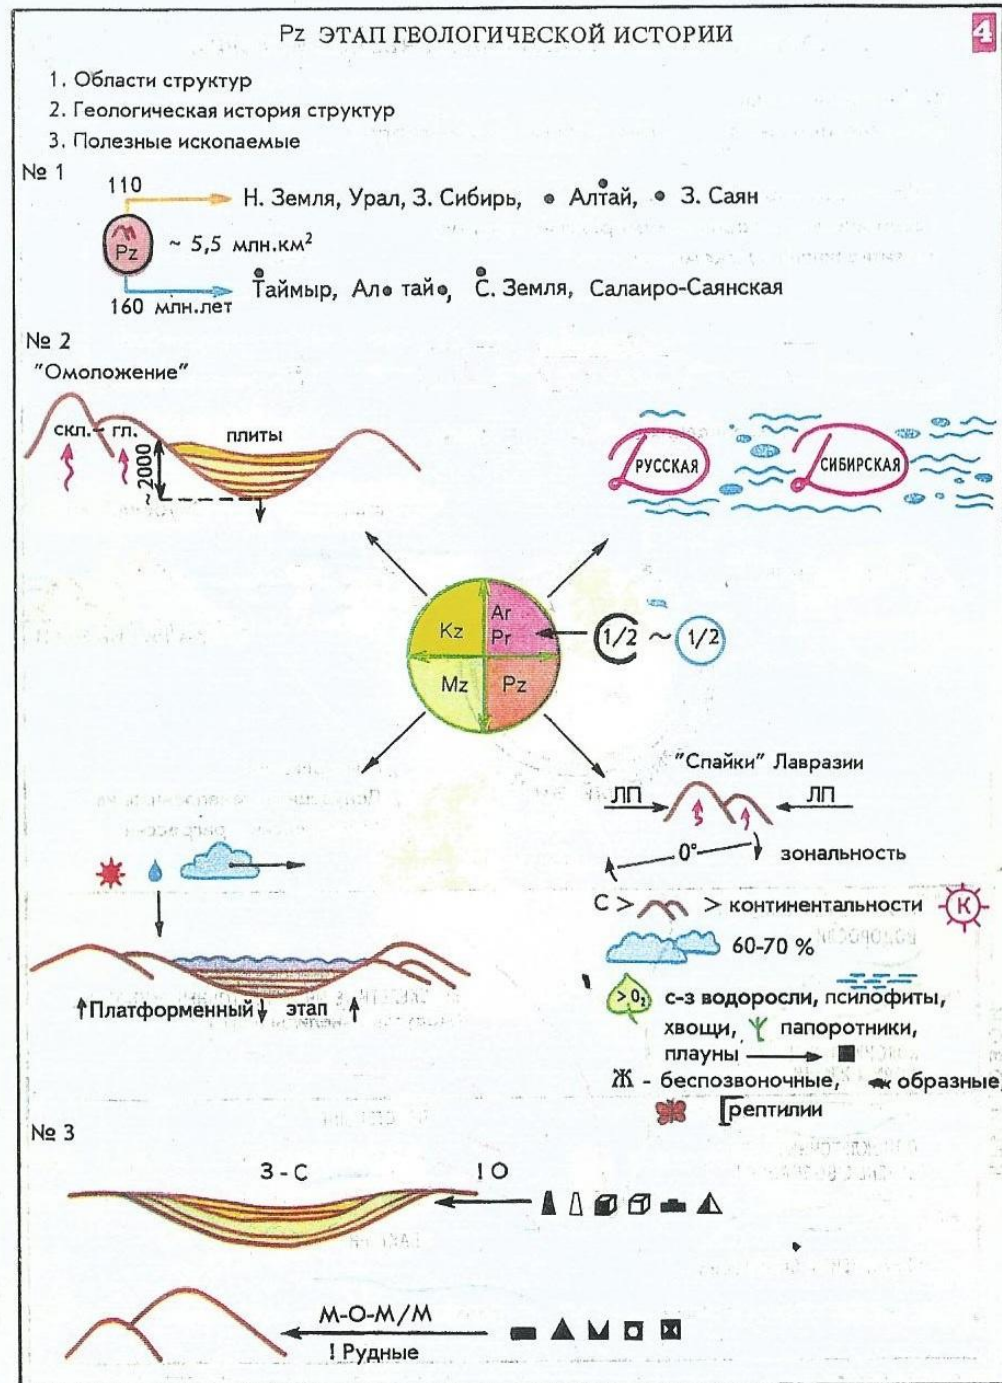 Pz ЭТАП ГЕОЛОГИЧЕСКОЙ ИСТОРИИ
4
1. Области структур
2. Геологическая история структур
3. Полезные ископаемые
№ 1
110
Н. Земля, Урал, З. Сибирь, • Алтай, • З. Саян
Pz
~ 5,5 млн.км²
160 млн.лет
Таймыр, Ал• тай•, С. Земля, Салаиро-Саянская
№ 2
"Омоложение"
скл.- гл.
плиты
~2000
РУССКАЯ
СИБИРСКАЯ
Kz
Ar
Pr
1/2 ~ 1/2
Mz
Pz
"Спайки" Лавразии
ЛП
ЛП
0°
зональность
С >
> континентальности
К
60-70 %
> O₂
с-з водоросли, псилофиты,
хвощи,
папоротники,
плауны
Ж - беспозвоночные,
образные,
рептилии
↑Платформенный↓ этап ↑
№ 3
З - С
Ю
М-О-М/М
! Рудные